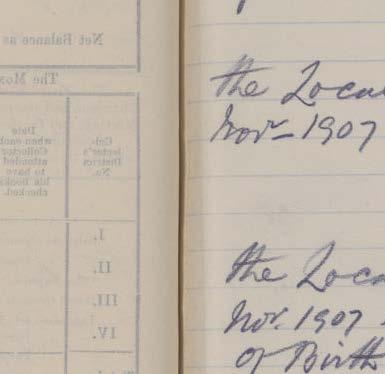 Net Balance as
The Mon
Col-
lector's
District
No.
Date
when each
Collector
attended
to have
his Books
checked.
I.
II.
III.
IV.
the Local
Novr 1907
the Loca
Nov. 1907
of Birth